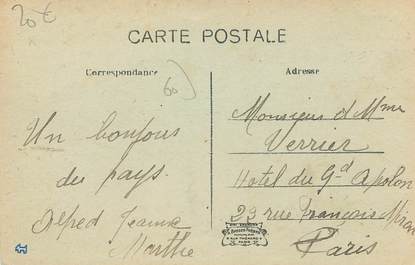 20€
CARTE POSTALE
Correspondance
Adresse
60
Un bonjour
du pays.
Alfred Jeanne
Marthe
Monsieur et Mme
Verrier
Hotel du Gd Apolon
23 rue François
Paris